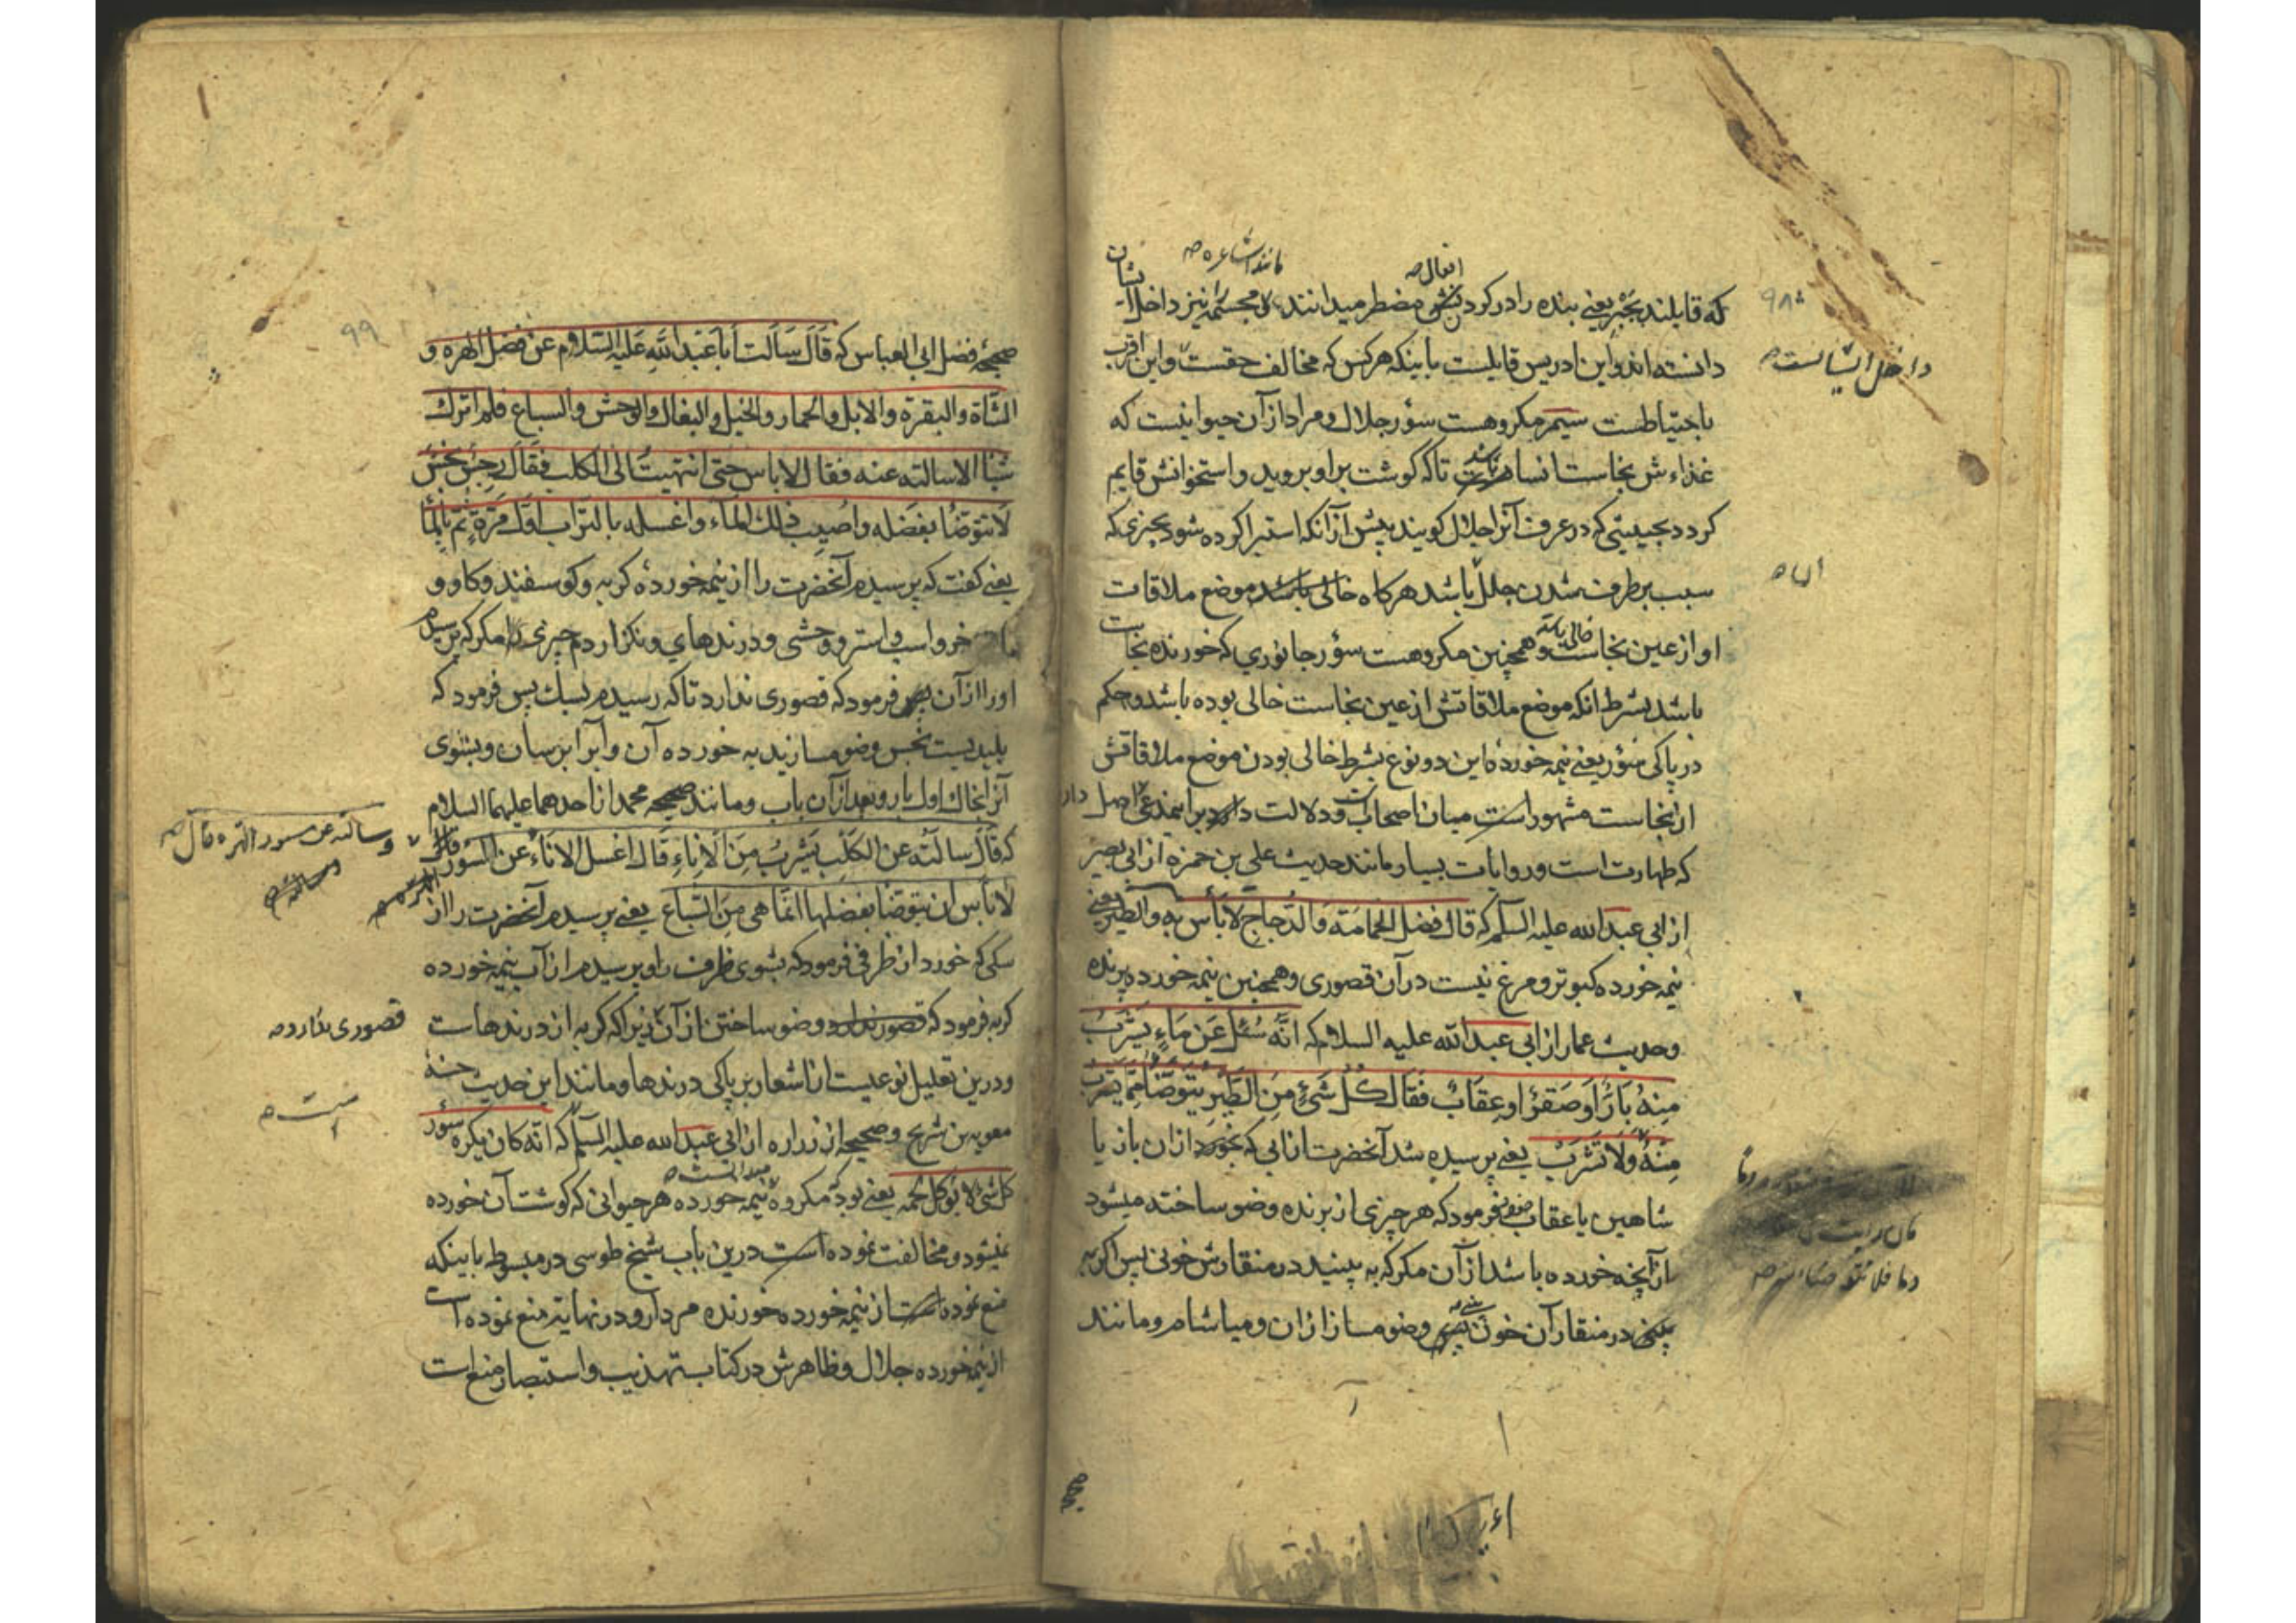 که قایلند بجبر یعنی بنده را در کردن افعال مضطر میدانند و مجسمه نیز داخل
مانند اشاعره صح
دانسته اند و ابن ادریس قایلست باینکه هرکس که مخالف حقست و این اقرب
باحتیاطست سیم مکروهست سؤر جلال و مراد از آن حیوانیست که
غذاءش نجاست انسان تا که گوشت بر او بروید و استخوانش قایم
گردد بحیثیتی که در عرف آنرا جلال گویند پیش از آنکه استبرا کرده شود بچیزی که
سبب برطرف شدن جلل باشد هرگاه خالی باشد موضع ملاقات
او از عین نجاست و همچنین مکروهست سؤر جانوری که خورنده نجاست
باشد بشرط انکه موضع ملاقاتش از عین نجاست خالی بوده باشد و حکم
در پاکی سؤر یعنی نیمه خوردۀ این دو نوع بشرط خالی بودن موضع ملاقاتش
از نجاست مشهور است میان اصحاب و دلالت دارد برایمدعی اصل
که طهارت است و روایات بسیار مانند حدیث علی بن حمزه از ابی بصیر
از ابی عبد الله علیه السلم که قال فضل الحمامة والدجاج لا بأس به والطیر یعنی
نیمه خورده کبوتر و مرغ نیست در آن قصوری و همچنین نیمه خورده پرنده
وحدیث عمار از ابی عبد الله علیه السلام که انه سئل عن ماء یشرب
منه باز او صقر او عقاب فقال کل شئ من الطیر یتوضأ مما یشرب
منه ولا تشرب یعنی پرسیده شد آنحضرت از ابی که بخورد از ان باز یا
شاهین یا عقاب فرمود که هر چیزی از پرنده وضو ساخته میشود
از آنچه خورده باشد از آن مگر که به بینید در منقارش خونی پس اگر به
بینی در منقار آن خون وضو مساز از ان و میاشام و مانند
داخل ایشانست صح
۹۹
صحیحۀ فضل ابی العباس که قال سألت أبا عبد الله علیه السلام عن فضل الهرة و
الشاة والبقرة والابل والحمار والخیل والبغال والوحش والسباع فلم اترک
شیئا الا سالته عنه فقال لا باس حتی انتهیت الی الکلب فقال رجس نجس
لا تتوضأ بفضله واصبب ذلک الماء واغسله بالتراب اول مرة ثم بالماء
یعنی گفت که پرسیدم آنحضرت را از نیمه خوردۀ گربه و گوسفند و گاو و
خر و اسب و استر و وحشی و درندهای و نگذاردم چیزی را مگر که پرسیدم
او را از آن فرمود که قصوری ندارد تا که رسیدم بسک پس فرمود که
پلیدیست نجس وضو مسازید به خورده آن و آبرا بریزان و بشوی
آنرا بخاک اول بار و بعد از آن باب و مانند صحیحه محمد از احدهما علیهما السلام
که قال سالته عن الکلب یشرب من الاناء قال اغسل الاناء عن السؤر
وسالته عن سور الهره قال صح
لا بأس ان یتوضأ بفضلها انما هی من السباع یعنی پرسیدم آنحضرت را از
سگی که خورد از ظرفی فرمود که بشوی ظرف را و پرسیدم از آب نیمه خورده
گربه فرمود که قصور ندارد وضو ساختن از آن زیرا که گربه از درندهاست
قصوری ندارد صح
ودرین تعلیل نوعیست از اشعار بر پاکی درندها و مانند این حدیث حسنۀ
معویه بن شریح وصحیحه از زراره از ابی عبد الله علیه السلم که انه کان یکره سؤر
کل شئ لا یؤکل لحمه یعنی بود مکروه نیمه خورده هر حیوانی که گوشت آن خورده
نمیشود و مخالفت نموده است درین باب شیخ طوسی در مبسوط باینکه
منع نموده است از نیمه خورده خورنده مردار و در نهایه منع نموده است
از نیمه خورده جلال و ظاهرش در کتاب تهذیب و استبصار منع است